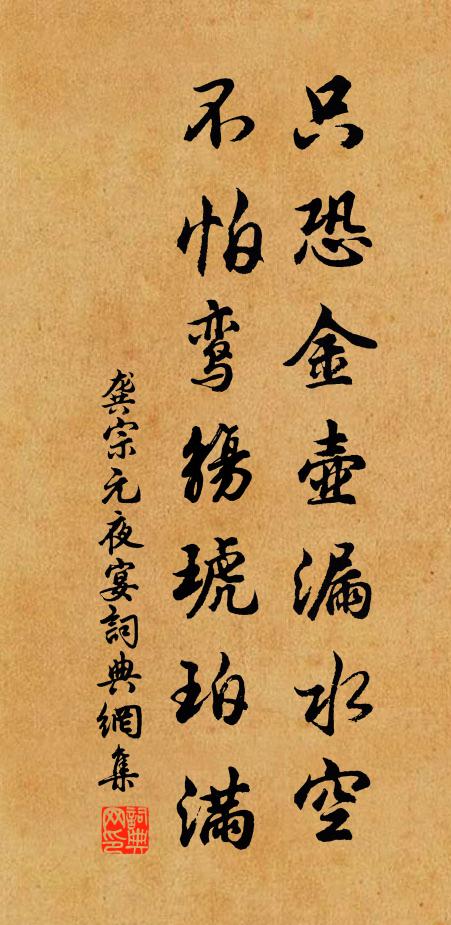 只恐金壺漏水空
不怕鸾觴琥珀满
龚宗元夜宴詞典網集
詞典网印